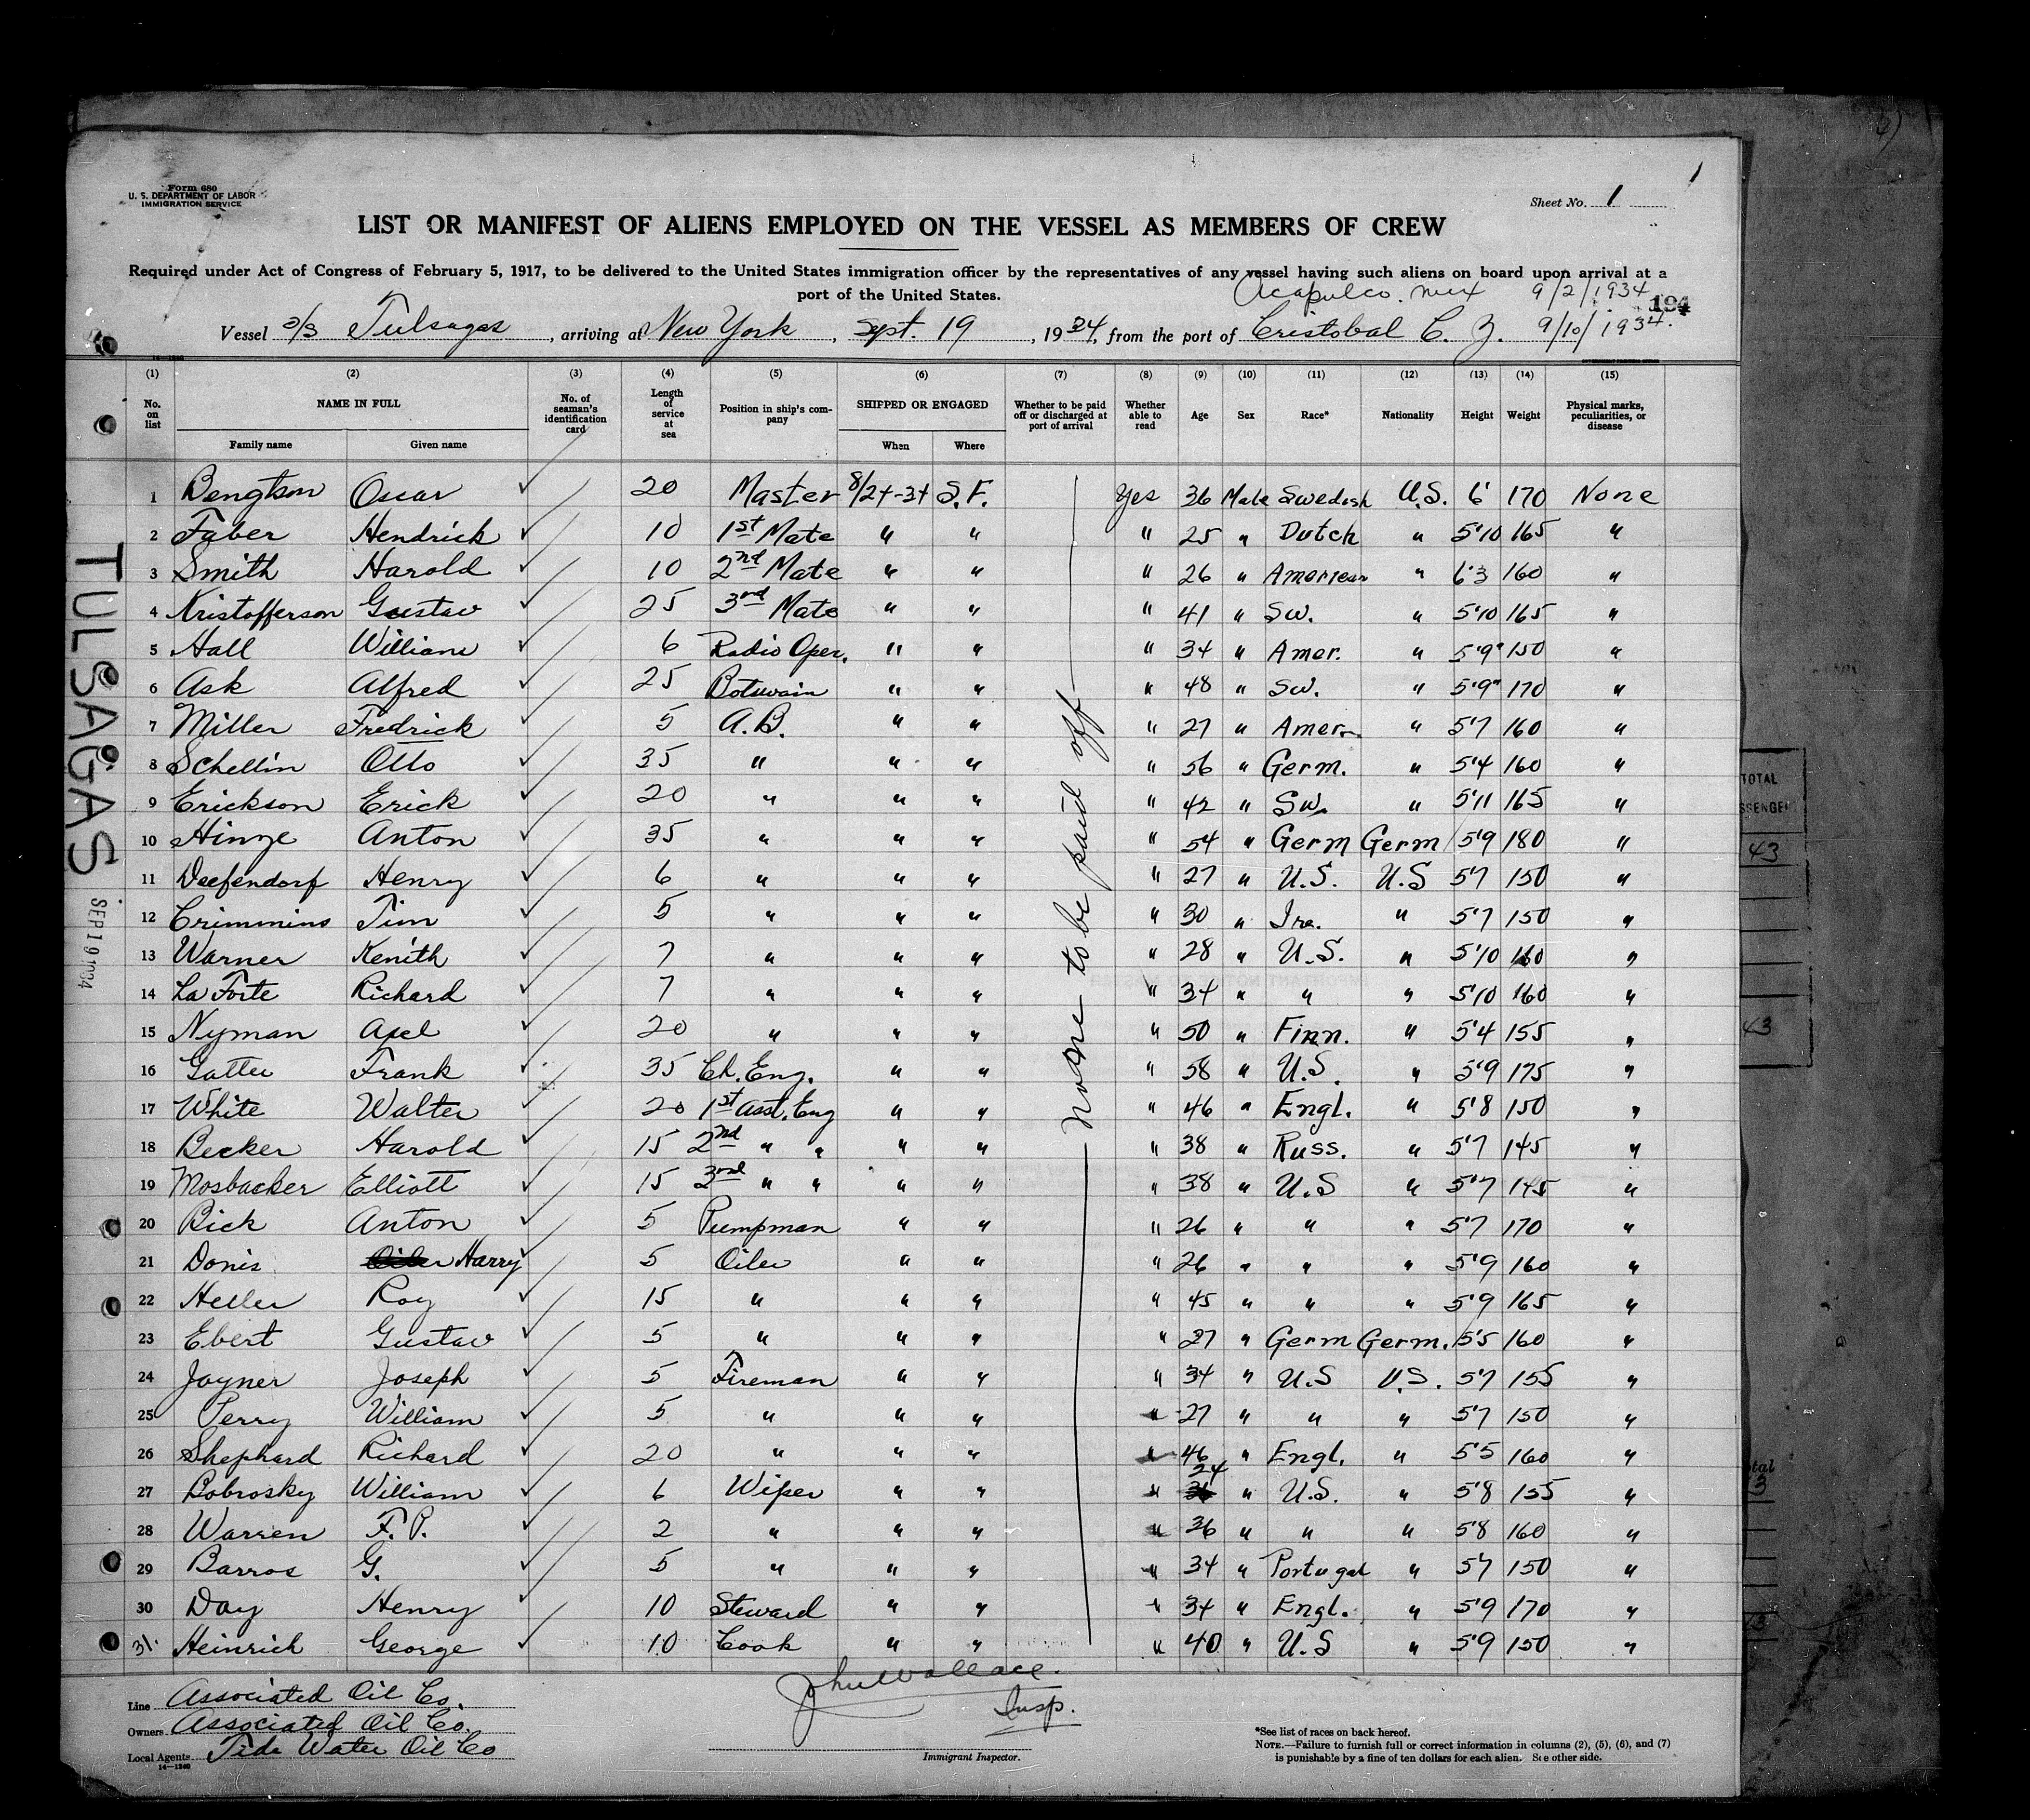 1
Form 680
U. S. DEPARTMENT OF LABOR
IMMIGRATION SERVICE
Sheet No. 1
LIST OR MANIFEST OF ALIENS EMPLOYED ON THE VESSEL AS MEMBERS OF CREW
Required under Act of Congress of February 5, 1917, to be delivered to the United States immigration officer by the representatives of any vessel having such aliens on board upon arrival at a
port of the United States.
Acapulco. Mex 9/2/1934
194
Vessel S/S Tulsagas, arriving at New York, Sept. 19, 1934, from the port of Cristobal C. Z. 9/10/1934.
(1) (2) (3) (4) (5) (6) (7) (8) (9) (10) (11) (12) (13) (14) (15)
No. on list NAME IN FULL Family name Given name No. of seaman's identification card Length of service at sea Position in ship's company SHIPPED OR ENGAGED When Where Whether to be paid off or discharged at port of arrival Whether able to read Age Sex Race* Nationality Height Weight Physical marks, peculiarities, or disease
1 Bengtson Oscar ✓ 20 Master 8/24-34 S.F. Yes 36 Male Swedish U.S. 6' 170 None
2 Faber Hendrick ✓ 10 1st Mate " " " 25 " Dutch " 5'10 165 "
3 Smith Harold ✓ 10 2nd Mate " " " 26 " American " 6'3 160 "
4 Kristofferson Gustav ✓ 25 3rd Mate " " " 41 " Sw. " 5'10 165 "
5 Hall William ✓ 6 Radio Oper. " " " 34 " Amer. " 5'9" 150 "
6 Ask Alfred ✓ 25 Botswain " " " 48 " Sw. " 5'9" 170 "
7 Miller Fredrick ✓ 5 A.B. " " " 27 " Amer. " 5'7 160 "
8 Schellin Otto ✓ 35 " " " " 56 " Germ. " 5'4 160 "
9 Erickson Erick ✓ 20 " " " " 42 " Sw. " 5'11 165 "
10 Hinze Anton ✓ 35 " " " " 54 " Germ Germ 5'9 180 "
11 Deefendorf Henry ✓ 6 " " " " 27 " U.S. U.S 5'7 150 "
12 Crimmins Tim ✓ 5 " " " " 30 " Ire. " 5'7 150 "
13 Warner Kenith ✓ 7 " " " " 28 " U.S. " 5'10 160 "
14 La Forte Richard ✓ 7 " " " " 34 " " " 5'10 160 "
15 Nyman Axel ✓ 20 " " " " 50 " Finn. " 5'4 155 "
16 Frank ✓ 35 Ch. Eng. " " " 58 " U.S. " 5'9 175 "
17 White Walter ✓ 20 1st Asst. Eng " " " 46 " Engl. " 5'8 150 "
18 Becker Harold ✓ 15 2nd " " " " " 38 " Russ. " 5'7 145 "
19 Mosbacker Elliott ✓ 15 3rd " " " " " 38 " U.S " 5'7 145 "
20 Bick Anton ✓ 5 Pumpman " " " 26 " " " 5'7 170 "
21 Donis Oiler Harry ✓ 5 Oiler " " " 26 " " " 5'9 160 "
22 Heller Roy ✓ 15 " " " " 45 " " " 5'9 165 "
23 Ebert Gustav ✓ 5 " " " " 27 " Germ Germ. 5'5 160 "
24 Joyner Joseph ✓ 5 Fireman " " " 34 " U.S U.S. 5'7 155 "
25 Perry William ✓ 5 " " " " 27 " " " 5'7 150 "
26 Shephard Richard ✓ 20 " " " " 46 " Engl. " 5'5 160 "
27 Bobrosky William ✓ 6 Wiper " " " 24 " U.S. " 5'8 155 "
28 Warren F. P. ✓ 2 " " " " 36 " " " 5'8 160 "
29 Barros G. ✓ 5 " " " " 34 " Portugal " 5'7 150 "
30 Day Henry ✓ 10 Steward " " " 34 " Engl. " 5'9 170 "
31. Heinrich George ✓ 10 Cook " " " 40 " U.S " 5'9 150 "
None to be paid off
TULSAGAS
SEP 19 1934
Line Associated Oil Co.
Owners Associated Oil Co.
Local Agents Tide Water Oil Co
14—1240
John Wallace.
Insp.
Immigrant Inspector.
*See list of races on back hereof.
NOTE.—Failure to furnish full or correct information in columns (2), (5), (6), and (7)
is punishable by a fine of ten dollars for each alien. See other side.
TOTAL
43
43